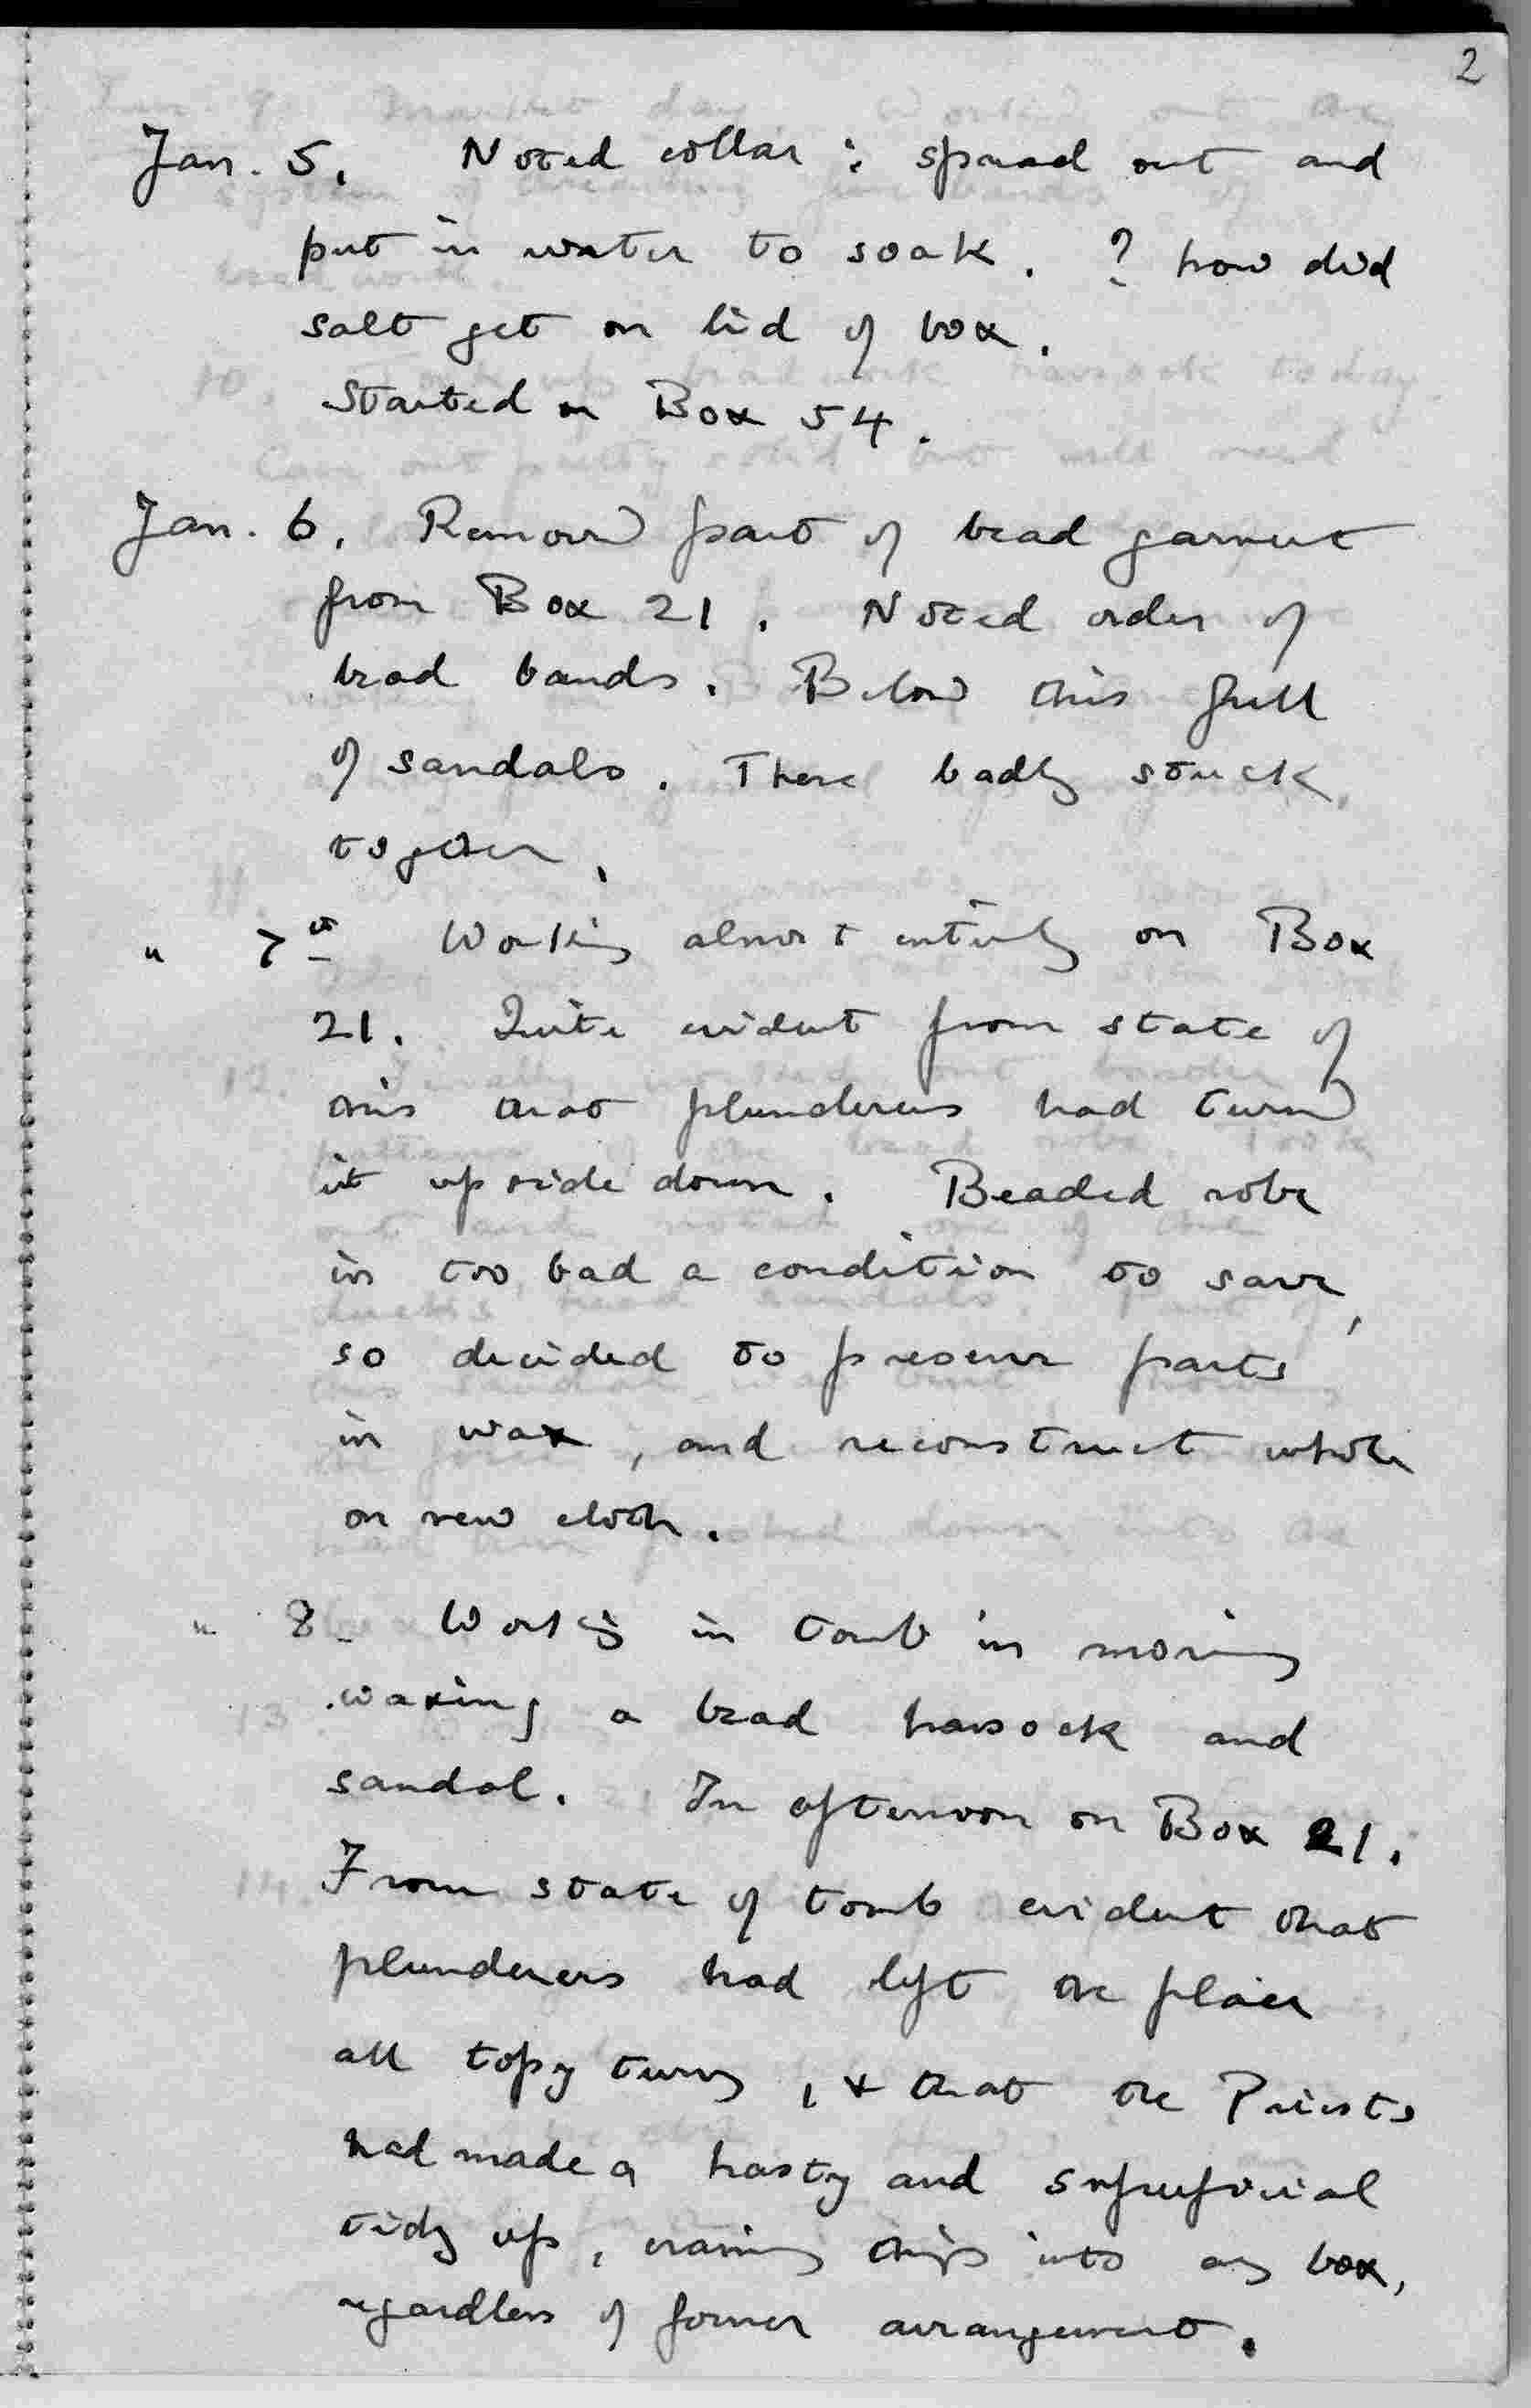 2
Jan. 5. Noted collar : spread out and
put in water to soak. ? how did
salt get on lid of box.
Started on Box 54.
Jan. 6. Removed part of bead garment
from Box 21. Noted order of
bead bands. Below this full
of sandals. These badly stuck
together.
" 7th Working almost entirely on Box
21. Quite evident from state of
this that plunderers had turned
it upside down. Beaded robe
in too bad a condition to save,
so decided to preserve parts
in wax, and reconstruct whole
on new cloth.
" 8. Working in tomb in morning
waxing a bead hassock and
sandal. In afternoon on Box 21.
From state of tomb evident that
plunderers had left the place
all topsy turvy, & that the Priests
had made a hasty and superficial
tidy up, cramming things into any box,
regardless of former arrangement.